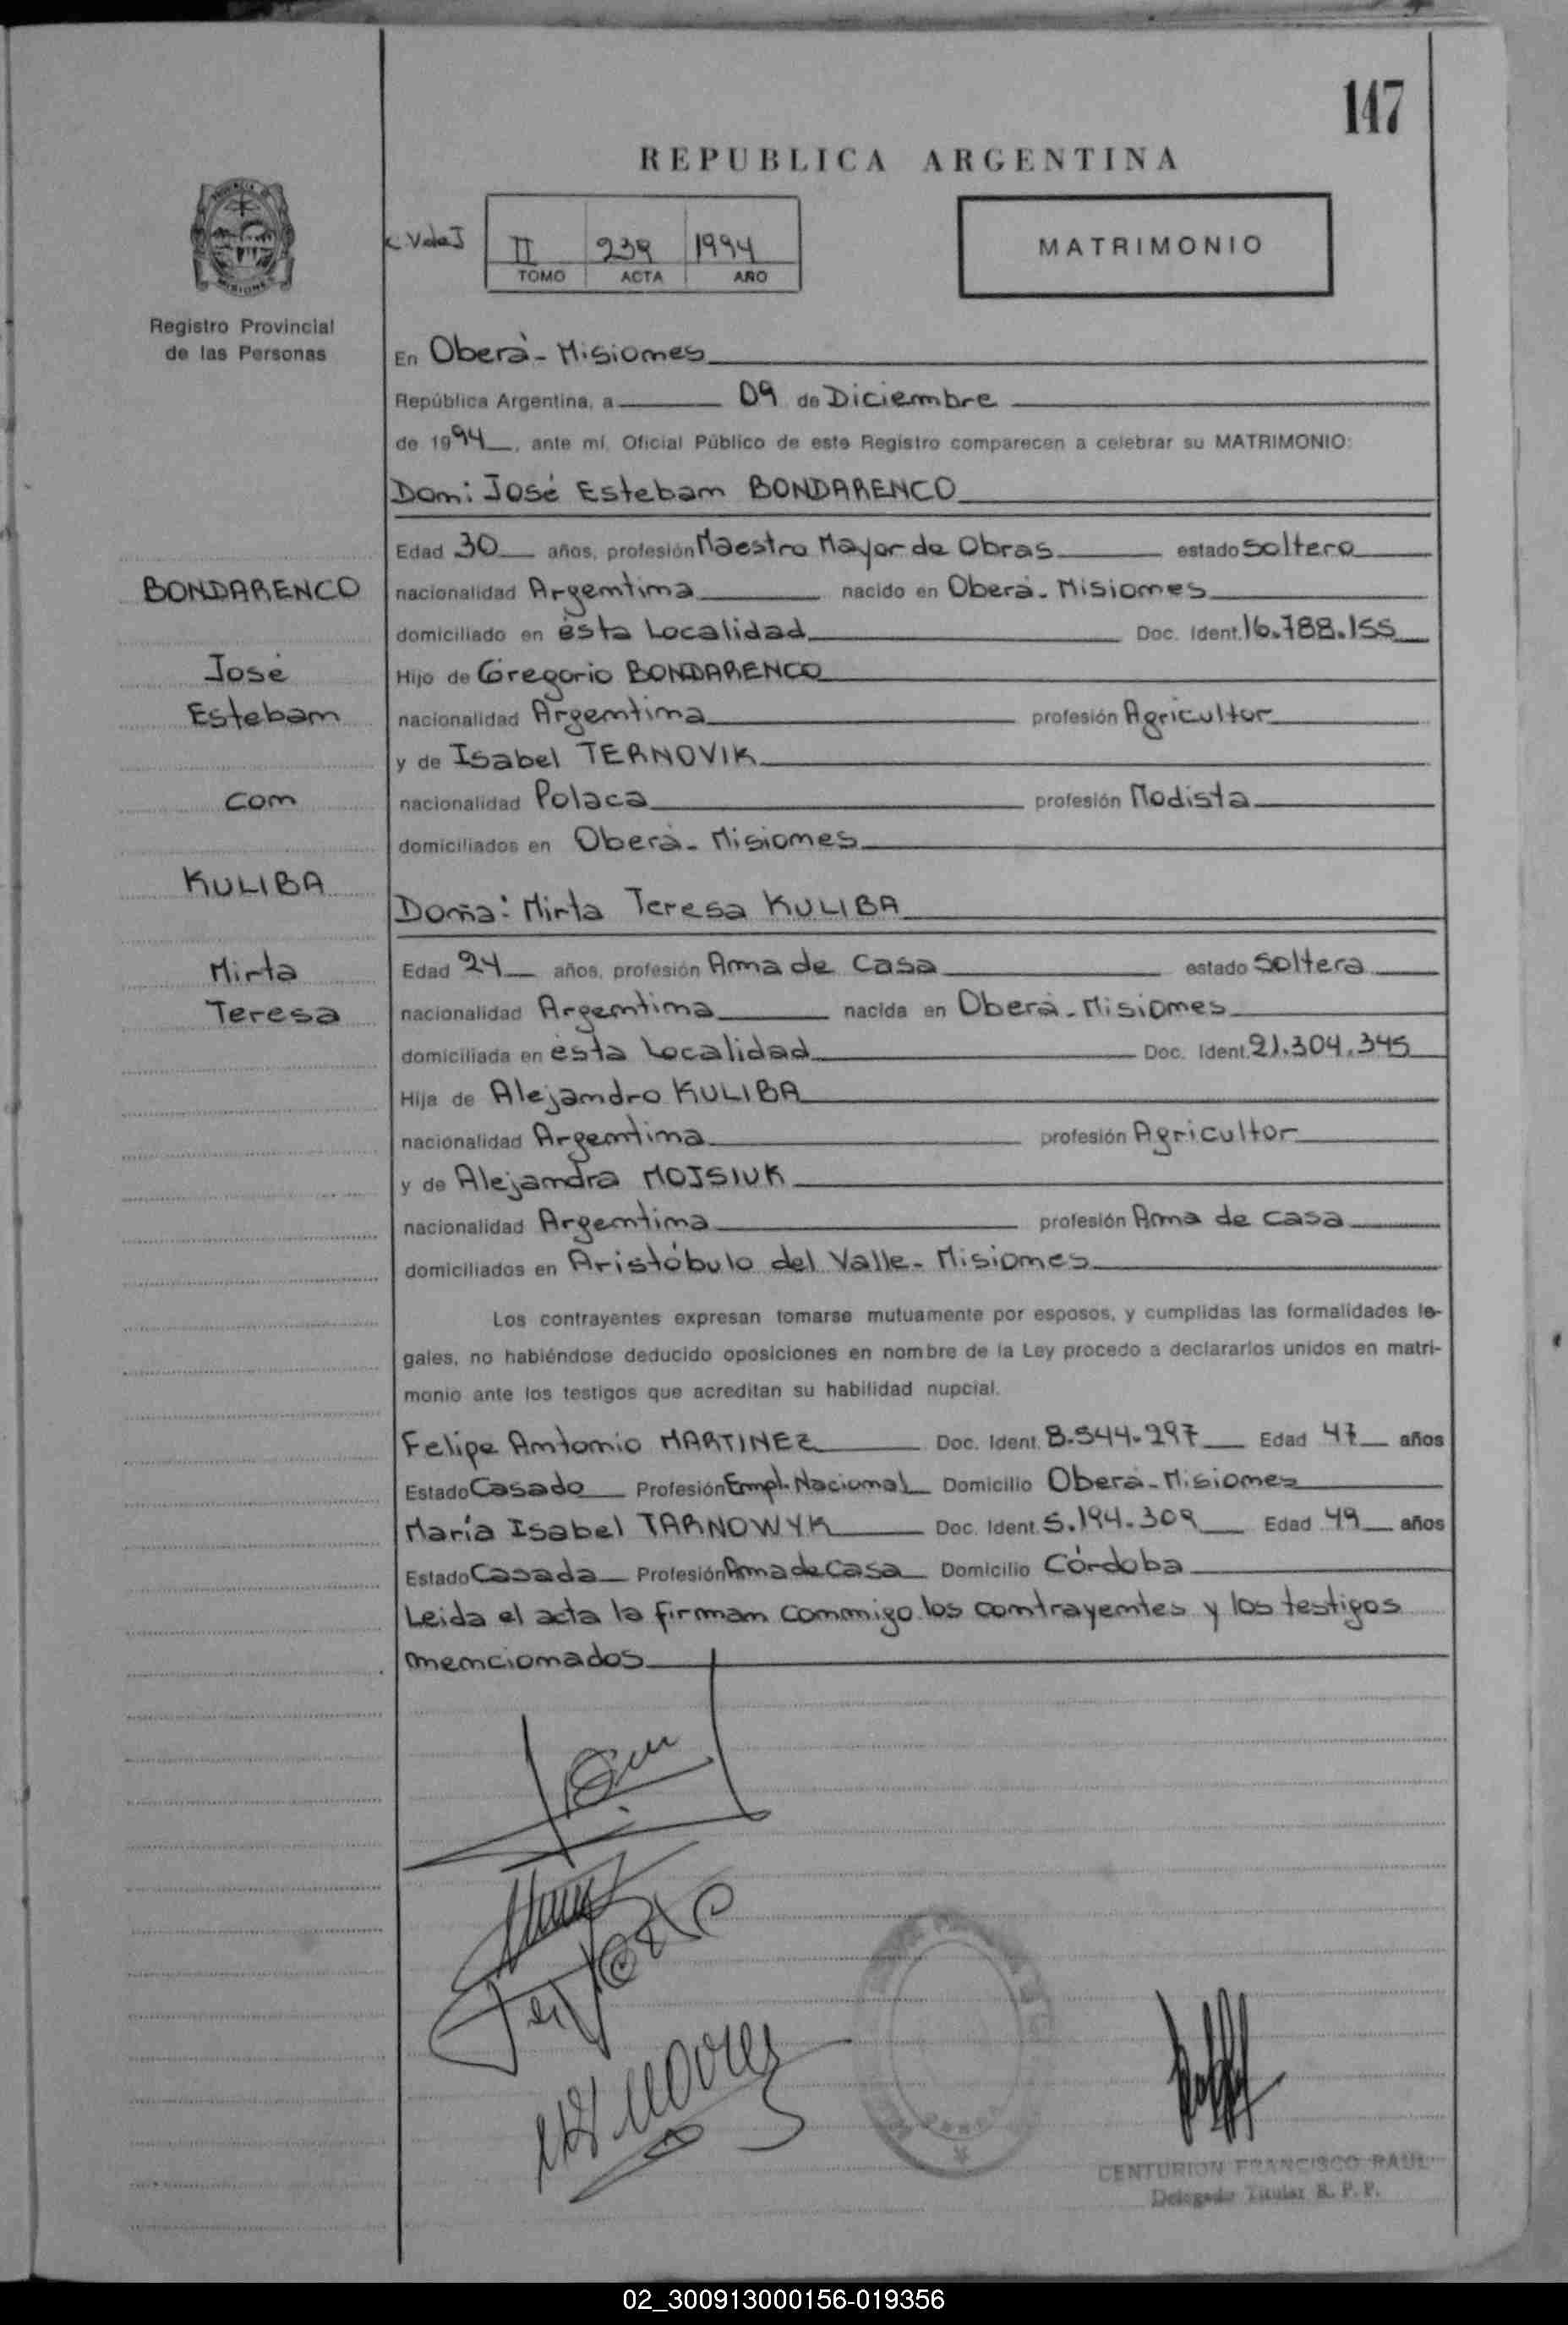 147
REPUBLICA ARGENTINA
II 239 1994
TOMO ACTA AÑO
MATRIMONIO
Registro Provincial
de las Personas
En Oberá - Misiones
República Argentina, a 09 de Diciembre
de 1994, ante mí, Oficial Público de este Registro comparecen a celebrar su MATRIMONIO:
Don: José Esteban BONDARENCO
Edad 30 años, profesión Maestro Mayor de Obras estado soltero
BONDARENCO
nacionalidad Argentina nacido en Oberá - Misiones
domiciliado en ésta Localidad Doc. Ident. 16.788.155
José
Hijo de Gregorio BONDARENCO
Esteban
nacionalidad Argentina profesión Agricultor
y de Isabel TERNOVIK
con
nacionalidad Polaca profesión Modista
domiciliados en Oberá - Misiones
KULIBA
Doña: Mirta Teresa KULIBA
Mirta
Edad 24 años, profesión Ama de Casa estado soltera
Teresa
nacionalidad Argentina nacida en Oberá - Misiones
domiciliada en ésta Localidad Doc. Ident. 21.304.345
Hija de Alejandro KULIBA
nacionalidad Argentina profesión Agricultor
y de Alejandra MOJSIUK
nacionalidad Argentina profesión Ama de casa
domiciliados en Aristóbulo del Valle - Misiones
Los contrayentes expresan tomarse mutuamente por esposos, y cumplidas las formalidades le-
gales, no habiéndose deducido oposiciones en nombre de la Ley procedo a declararlos unidos en matri-
monio ante los testigos que acreditan su habilidad nupcial.
Felipe Antonio MARTINEZ Doc. Ident. 8.544.297 Edad 47 años
Estado Casado Profesión Empl. Nacional Domicilio Oberá - Misiones
María Isabel TARNOWYK Doc. Ident. 5.194.309 Edad 49 años
Estado Casada Profesión Ama de Casa Domicilio Córdoba
Leida el acta la firman conmigo los contrayentes y los testigos
mencionados
CENTURION FRANCISCO RAUL
Delegado Titular R. P. P.
02_300913000156-019356